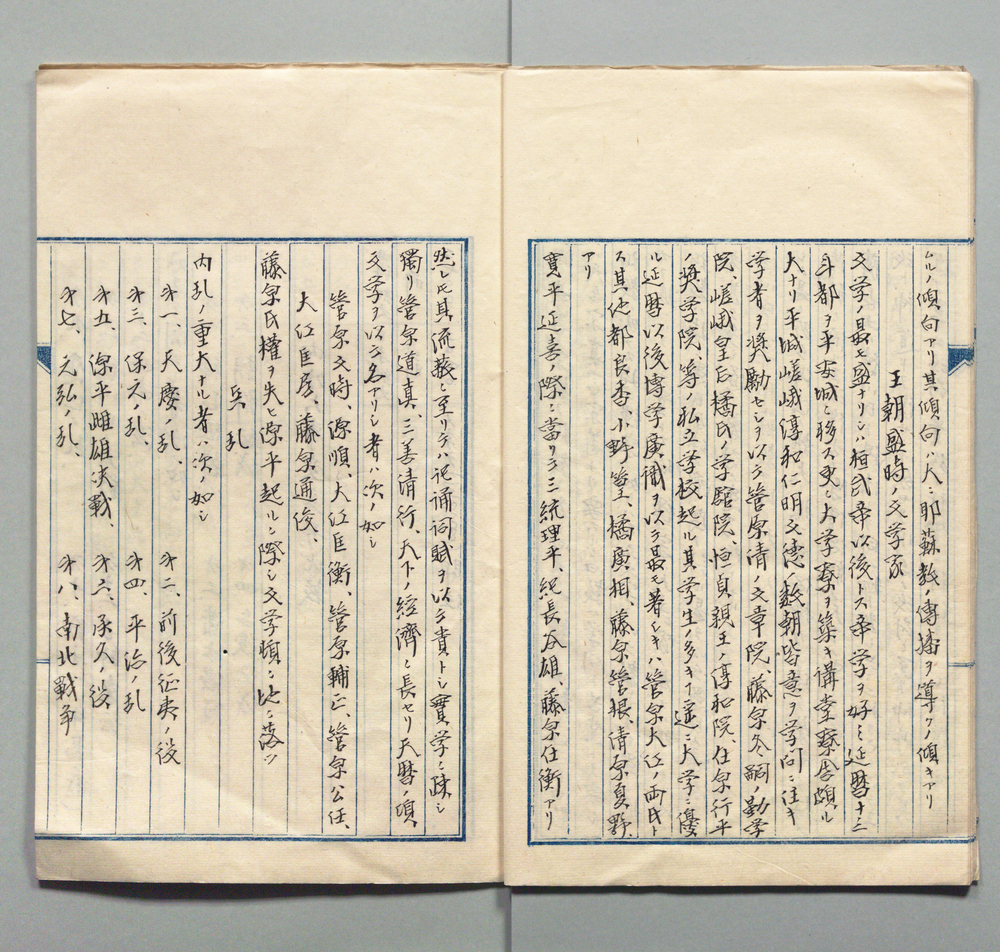 ムルノ傾向アリ其傾向ハ大ニ耶蘇教ノ傳播ヲ導クノ傾キアリ
王朝盛時ノ文学家
文学ノ最モ盛ナリシハ桓武帝以後トス帝学ヲ好ミ延暦十三
年都ヲ平安城ニ移ス更ニ大学寮ヲ築キ講堂寮舎頗ル
大ナリ平城嵯峨淳和仁明文徳ノ数朝皆意ヲ学問ニ注キ
学者ヲ奨勵セシヲ以テ菅原清ノ文章院、藤原冬嗣ノ勸学
院、嵯峨皇后橘氏ノ学館院、恒貞親王ノ淳和院、在原行平
ノ奨学院、等ノ私立学校起ル其学生ノ多キヿ遥ニ大学ニ優
ル延暦以後博学廣識ヲ以テ最モ著シキハ菅原大江ノ両氏ト
ス其他都良香、小野篁、橘廣相、藤原菅根、清原夏野、
アリ
寛平延喜ノ際ニ當リテ三統理平、紀長谷雄、藤原在衡アリ
然レ𪜈其流弊ニ至リテハ記誦詞賦ヲ以テ貴トシ實学ニ疎シ
獨リ菅原道真、三善清行、天下ノ經濟ニ長セリ天暦ノ頃、
文学ヲ以テ名アリシ者ハ次ノ如シ
菅原文時、源順、大江匡衡、菅原輔正、菅原公任、
大江匡房、藤原通俊、
藤原氏權ヲ失ヒ源平起ルニ際シ文学頓ニ地ニ落ツ
兵乱
内乱ノ重大ナル者ハ次ノ如シ
㐧一、天慶ノ乱、　㐧二、前後征夷ノ役
㐧三、保元ノ乱、　㐧四、平治ノ乱
㐧五、源平雌雄決戰、　㐧六、承久ノ役
㐧七、元弘ノ乱、　㐧八、南北戰争